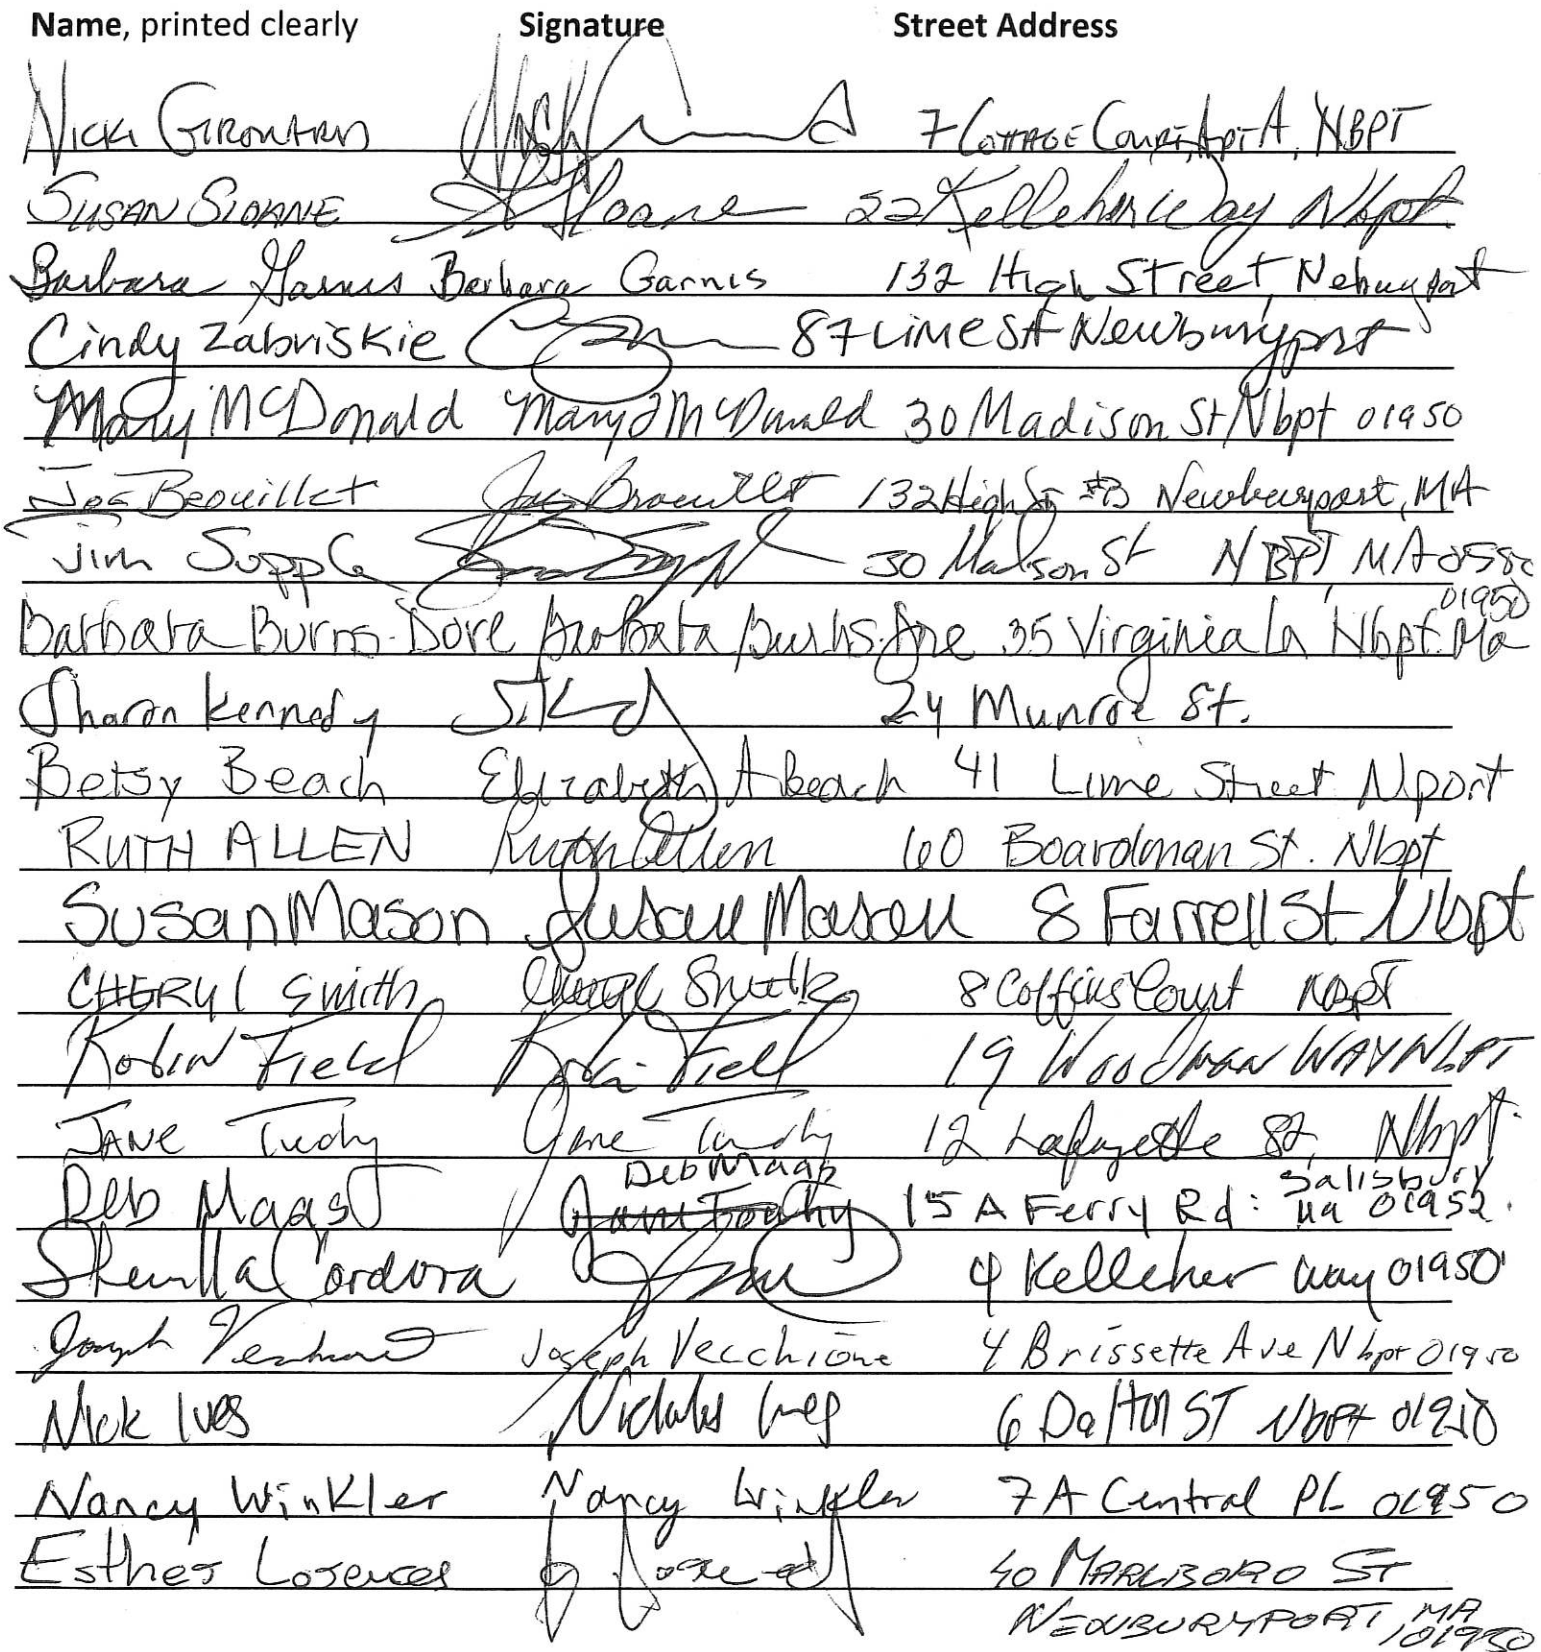 Name, printed clearly Signature Street Address
Nicki 7 Cottage Court, Apt A, NBPT
Susan Sloane S Sloane 22 Kelleher Way Nbpt.
Barbara Garnis Barbara Garnis 132 High Street, Newburyport
Cindy Zabriskie 87 Lime St Newburyport
Mary McDonald Mary J McDonald 30 Madison St Nbpt 01950
Joe Brouillet Joe Brouillet 132 High St #3 Newburyport, MA
Jim Supple 30 Madison St NBPT, MA
01950
Barbara Burns-Dore Barbara Burns-Dore 35 Virginia Ln Nbpt. Ma
Sharon Kennedy 24 Munroe St.
Betsy Beach Elizabeth A Beach 41 Lime Street Nport
RUTH ALLEN Ruth Allen 60 Boardman St. Nbpt
Susan Mason Susan Mason 8 Farrell St Nbpt
CHERYL Smith Cheryl Smith 8 Coffins Court NBPT
Robin Field Robin Field 19 Woodman WAY Nbpt
JANE Tuohy Jane Tuohy 12 Lafayette St, Nbpt.
Deb Maas Deb Maas 15 A Ferry Rd: Salisbury
Ma 01952.
Cordova 4 Kelleher Way 01950
Joseph Vecchione Joseph Vecchione 4 Brissette Ave Nbpt 01950
Nick Ives Nicholas Ives 6 Dalton ST Nbpt 01950
Nancy Winkler Nancy Winkler 7A Central Pl 01950
Esther 40 MARLBORO ST
NEWBURYPORT, MA
01950